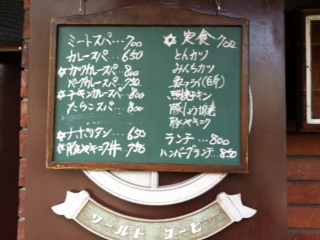 ミートスパ…700
カレースパ…650
☆カツカレースパ…800
バークカレースパ…750
☆チキンカレースパ…800
たらこスパ…800
☆ナポリタン…650
☆豚ヤキニク丼…750
☆定食 700
とんカツ
みんちカツ
魚フライ(白身)
照焼チキン
豚しょうが焼
豚ヤキニク
ランチ…800
ハンバーグランチ…850
ワールド コーヒー